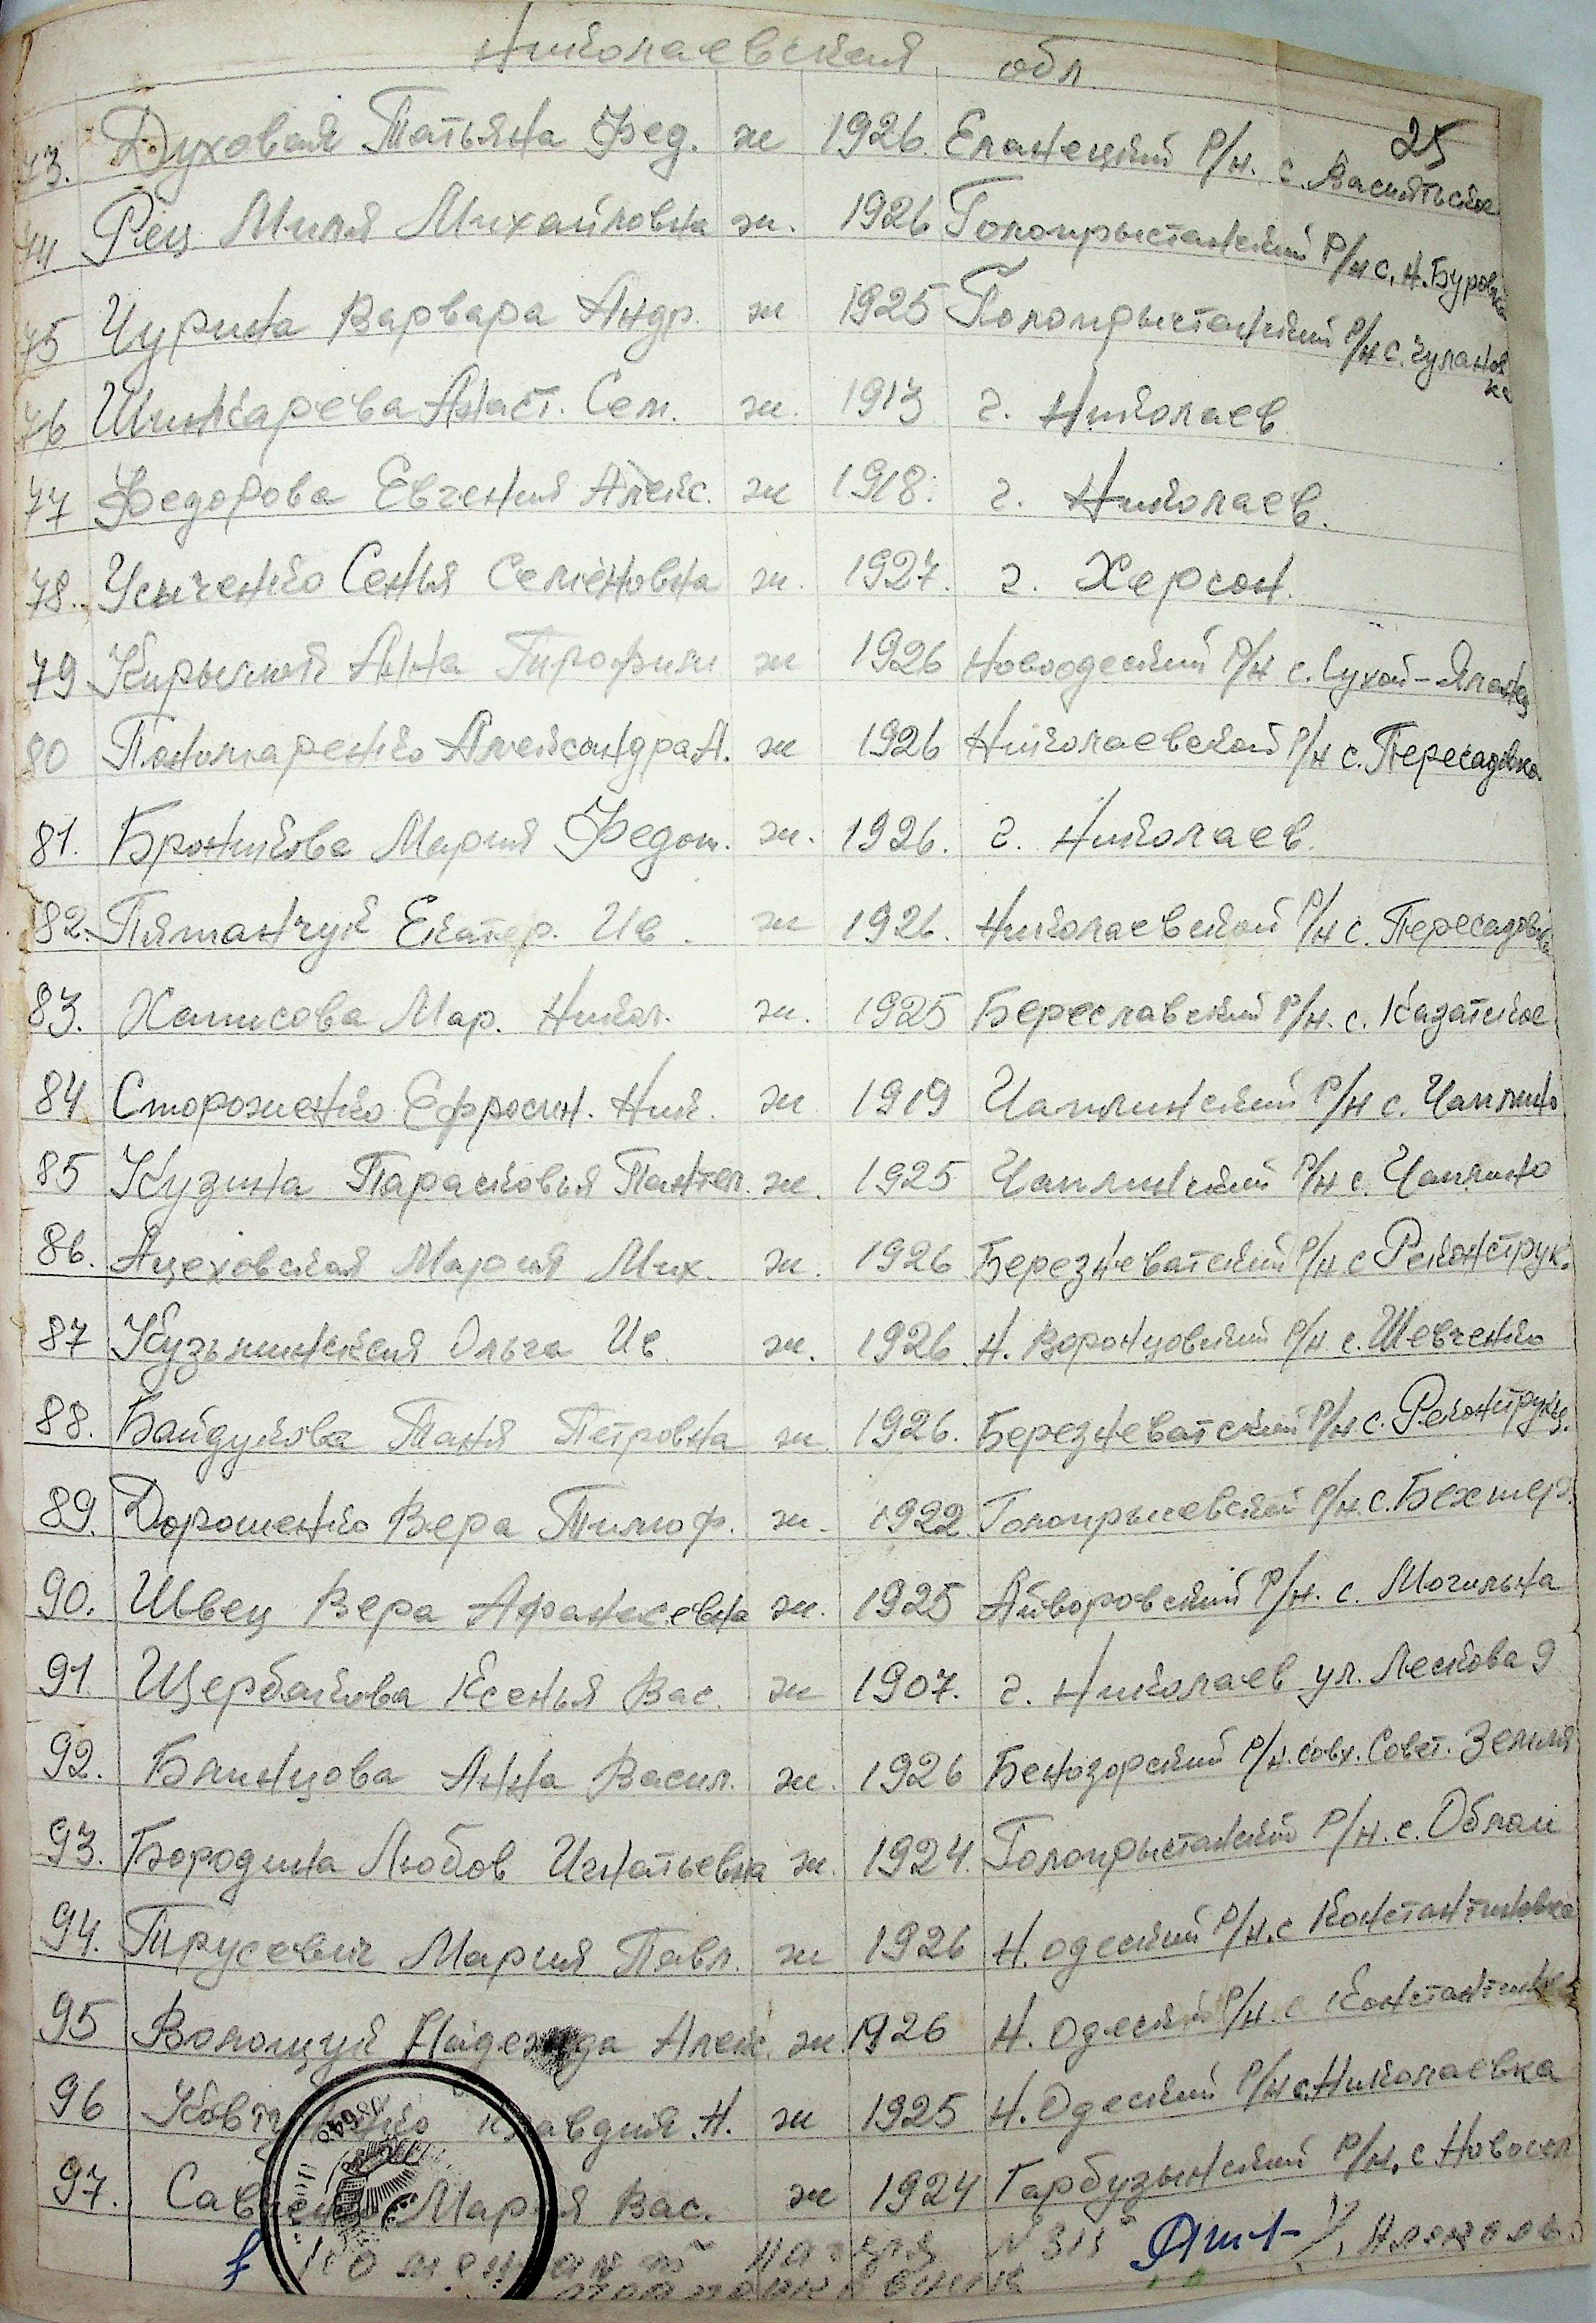 Николаевская обл.
25
73. Духовая Татьяна Фед. ж 1926. Еланецкий р/н. с. Васильевка
74 Рец Миля Михайловна ж. 1926 Голопрыстанский р/н с. Н. Буровка
75 Чурина Варвара Андр. ж 1925 Голопрыстанский р/н с. Чулановка
76 Шинкарева Анаст. Сем. ж. 1913 г. Николаев
77 Федорова Евгения Алекс. ж 1918. г. Николаев.
78. Усиченко Сенья Семёновна ж. 1927. г. Херсон.
79 Анна ж 1926 Новоодеский р/н с. Сухой-Яланец
80 Понимаренко Александра А. ж 1926 Николаевской р/н с. Пересадовка
81. Броникова Мария Федот. ж. 1926. г. Николаев.
82. Пятанчук Екатер. Ив. ж 1926. Николаевской р/н с. Пересадовка
83. Хаписова Мар. Никол. ж. 1925 Береславский р/н. с. Казатское
84 Стороженко Ефросин. Ник. ж 1919 Чаплинский р/н с. Чаплино
85 Кузина Парасковья Пантел. ж. 1925 Чаплинский р/н с. Чаплино
86. Ацеховская Мария Мих. ж. 1926 Березневатский р/н с Реконструк.
87 Кузьминская Ольга Ив. ж. 1926 Н. Воронцовский р/н с. Шевченко
88. Байдукова Таня Петровна ж. 1926. Березневатский р/н с. Реконструкц.
89. Дорошенко Вера Тимоф. ж. 1922. Голопрысевской р/н. с. Бехтер.
90. Швец Вера Афанасевна ж. 1925 Айворовский р/н. с. Могильна
91. Щербакова Ксенья Вас. ж 1907. г. Николаев ул. Лескова 9
92. Блинцова Анна Васил. ж. 1926 Бенозорский р/н. совх. Совет. Земля
93. Бородина Любов Игнатьевна ж. 1924. Голопрыстанский р/н. с. Облаи
94. Трусевич Мария Павл. ж 1926 Н. одеский р/н. с Константиновка
95 Волощук Надежда Алекс. ж. 1926 Н. Одеский р/н. с Константиновка
96 Клавдия Н. ж 1925 Н. Одеский р/н с. Николаевка
97. Савченко Мария Вас. ж 1924 Гарбузынский р/н, с Новосел
Комендант лагеря № 315